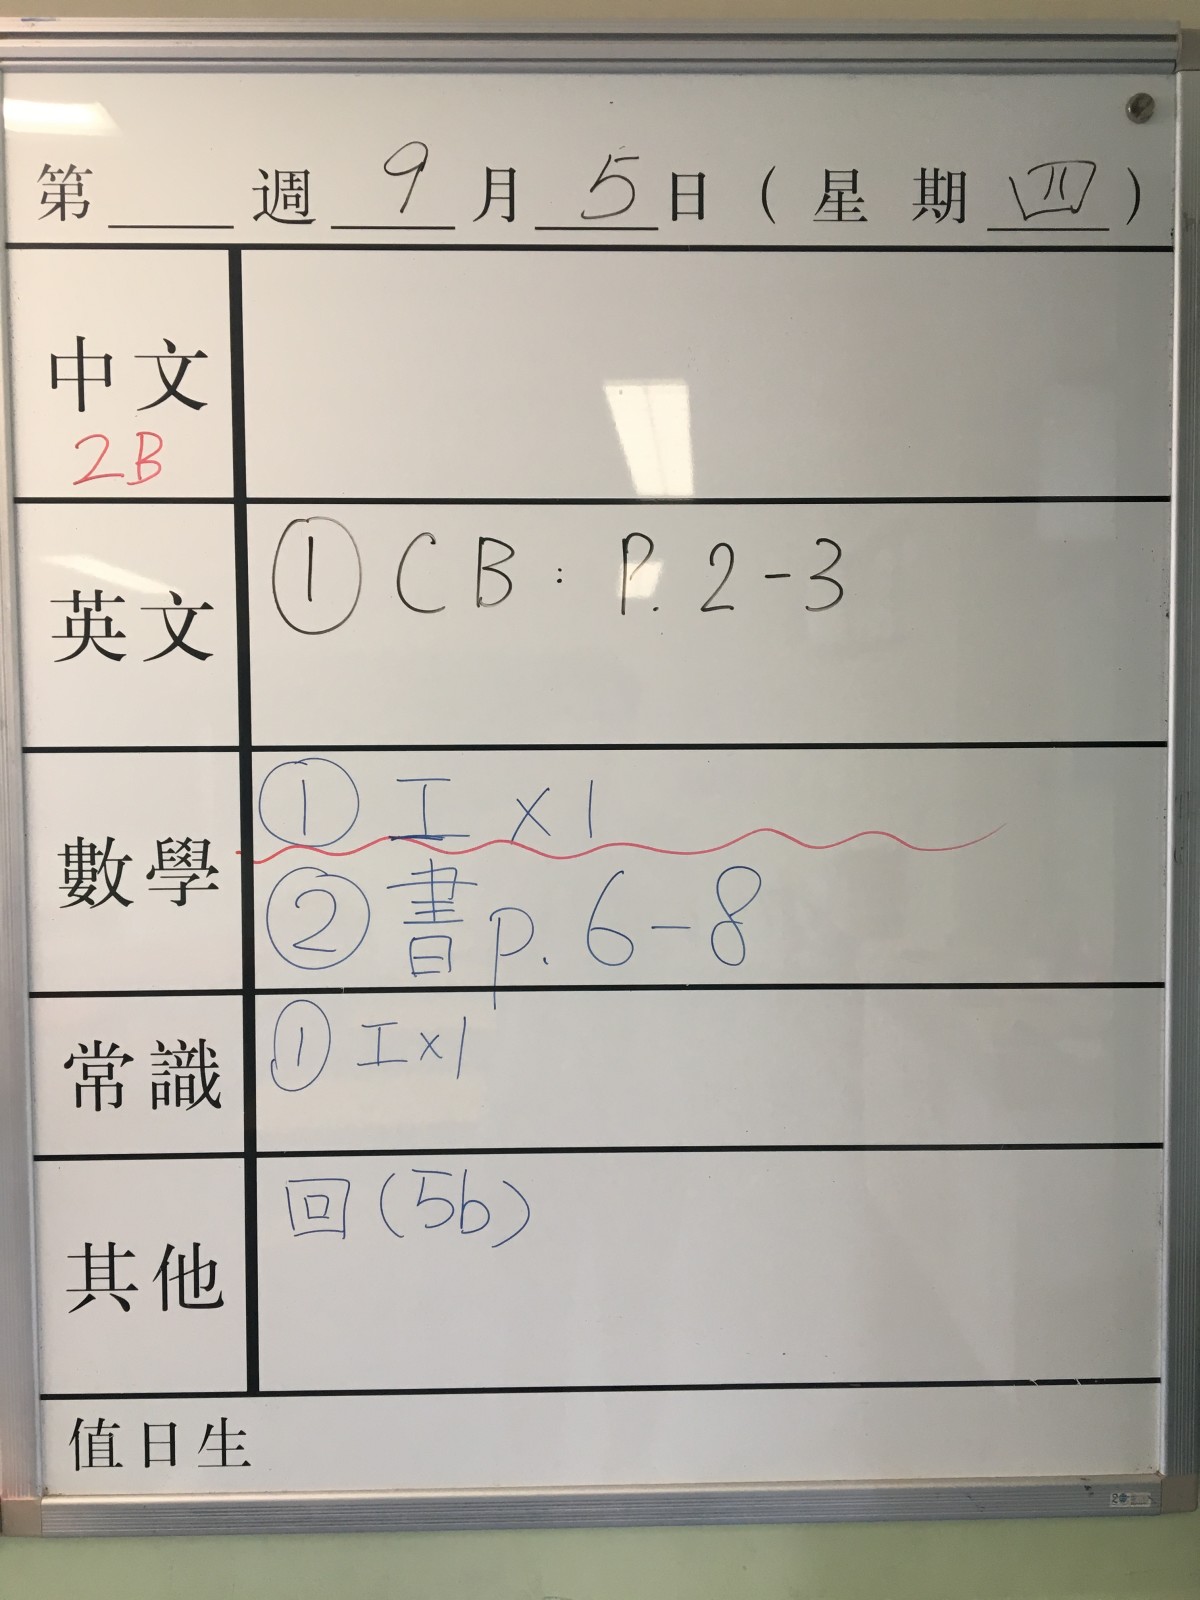 第____週 9 月 5 日（星期 四）
中文
2B
英文 ① CB : P. 2-3
數學 ① 工 x 1
② 書 p. 6-8
常識 ① 工x1
其他 回 (5b)
值日生